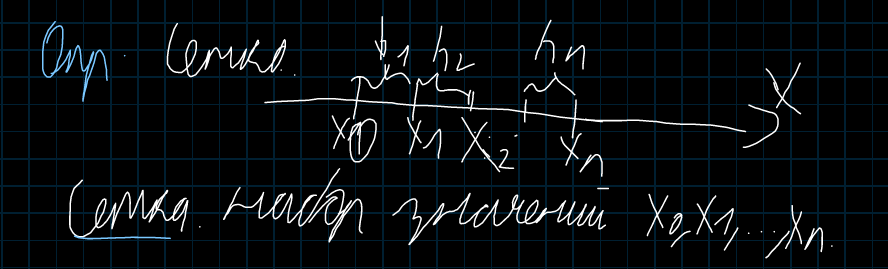 Опр. Сетка.
h1 h2 hn
x0 x1 x2 xn X
Сетка. набор значений x0, x1, ..., xn.